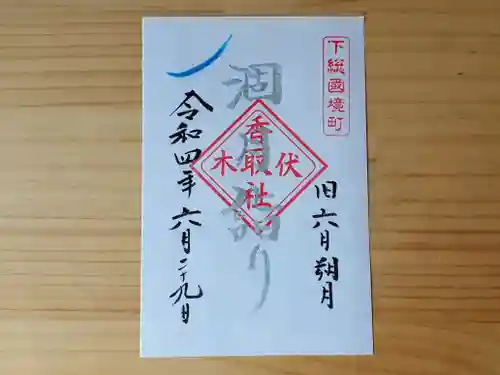 下総國境町
旧六月朔月
涸月詣り
香取社
伏木
令和四年六月二十九日